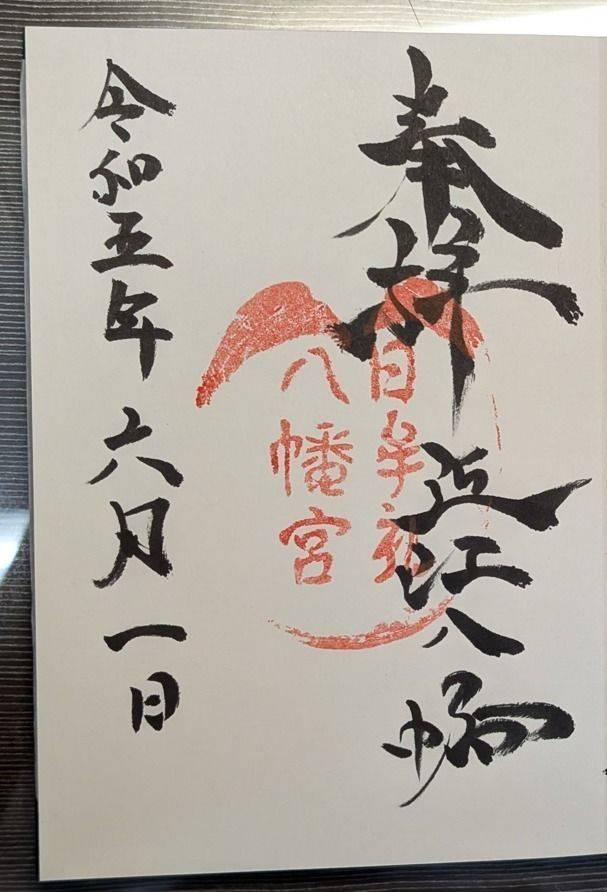 奉拝
近江八幡
日牟礼
八幡宮
令和五年六月一日